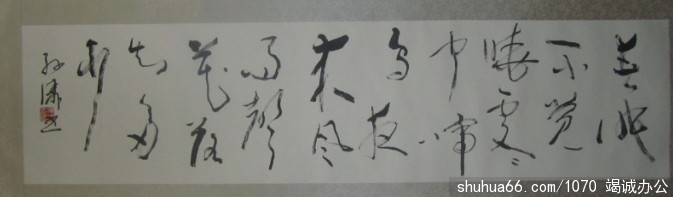 春眠
不觉
晓處々
闻啼
鸟夜
来风
雨聲
花落
知多
少
shuhua66.com/1070 竭诚办公